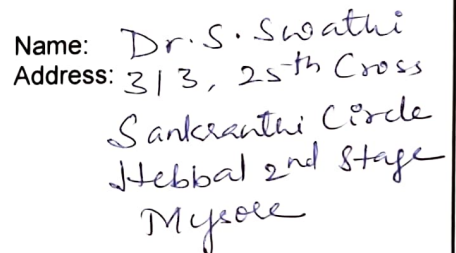 Name: Dr. S. Swathi
Address: 313, 25th Cross
Sankranthi Circle
Hebbal 2nd Stage
Mysore